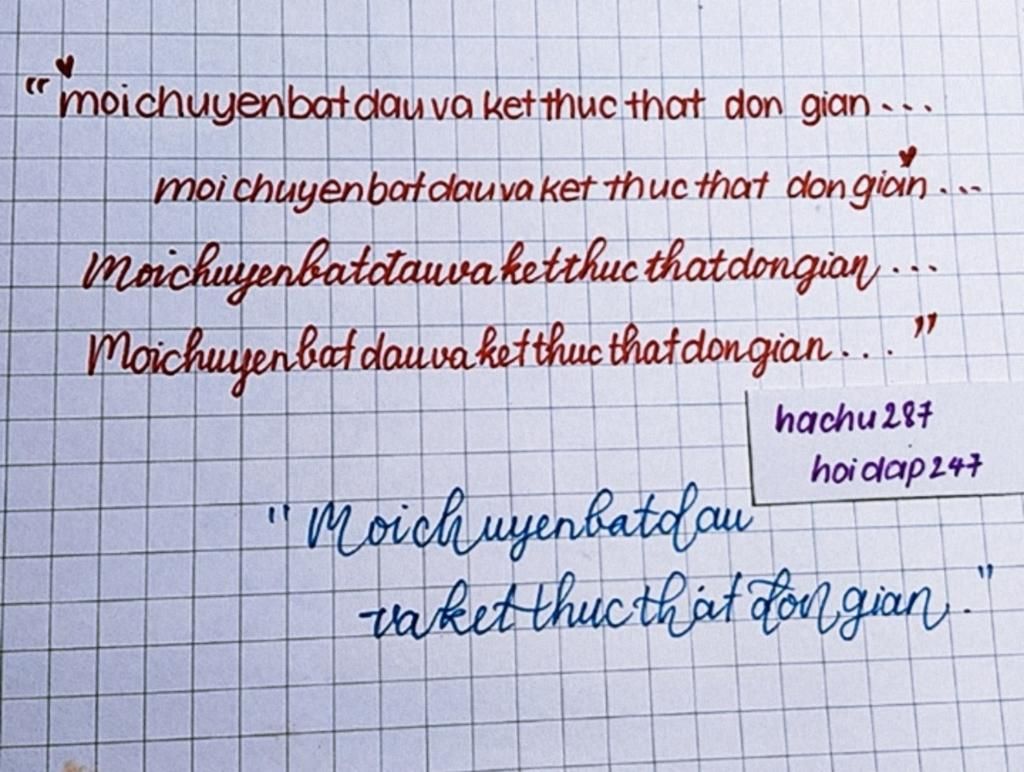 “moichuyenbatdauva ketthuc that don gian...
moichuyenbatdauvaket thuc that dongian...
Moichuyenbatdauvaketthuc thatdongian...
Moichuyenbatdauvaketthucthatdongian...”
hachu287
hoidap247
"Moichuyenbatdau
vaketthucthatdongian."